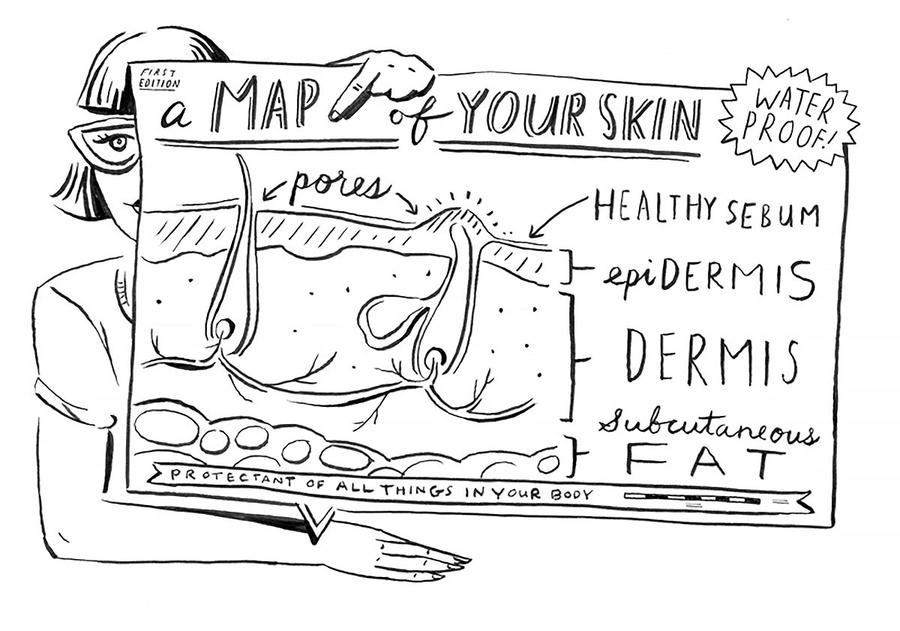 FIRST
EDITION
a MAP of YOUR SKIN
WATER
PROOF!
pores
HEALTHY SEBUM
epiDERMIS
DERMIS
subcutaneous
FAT
PROTECTANT OF ALL THINGS IN YOUR BODY